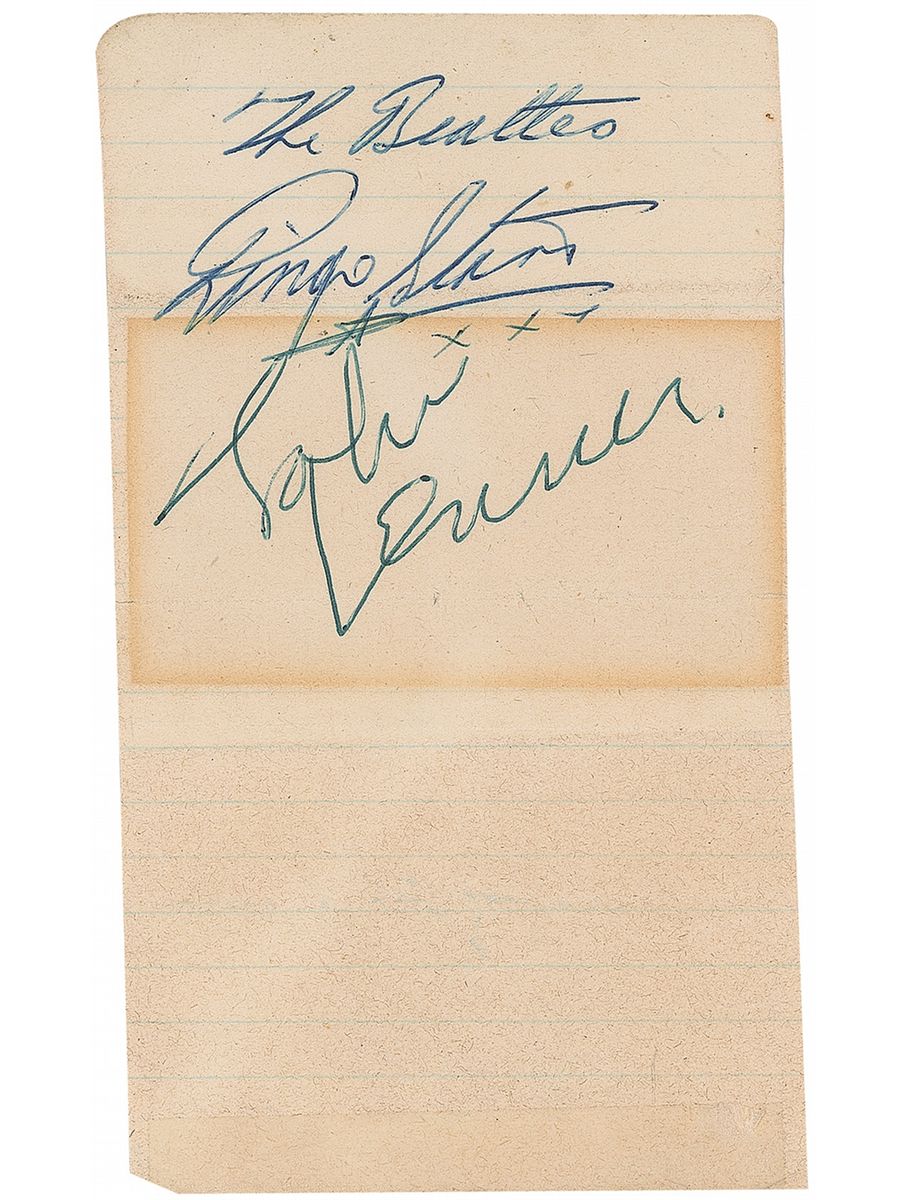 The Beatles
Ringo Starr
x x x
John Lennon.